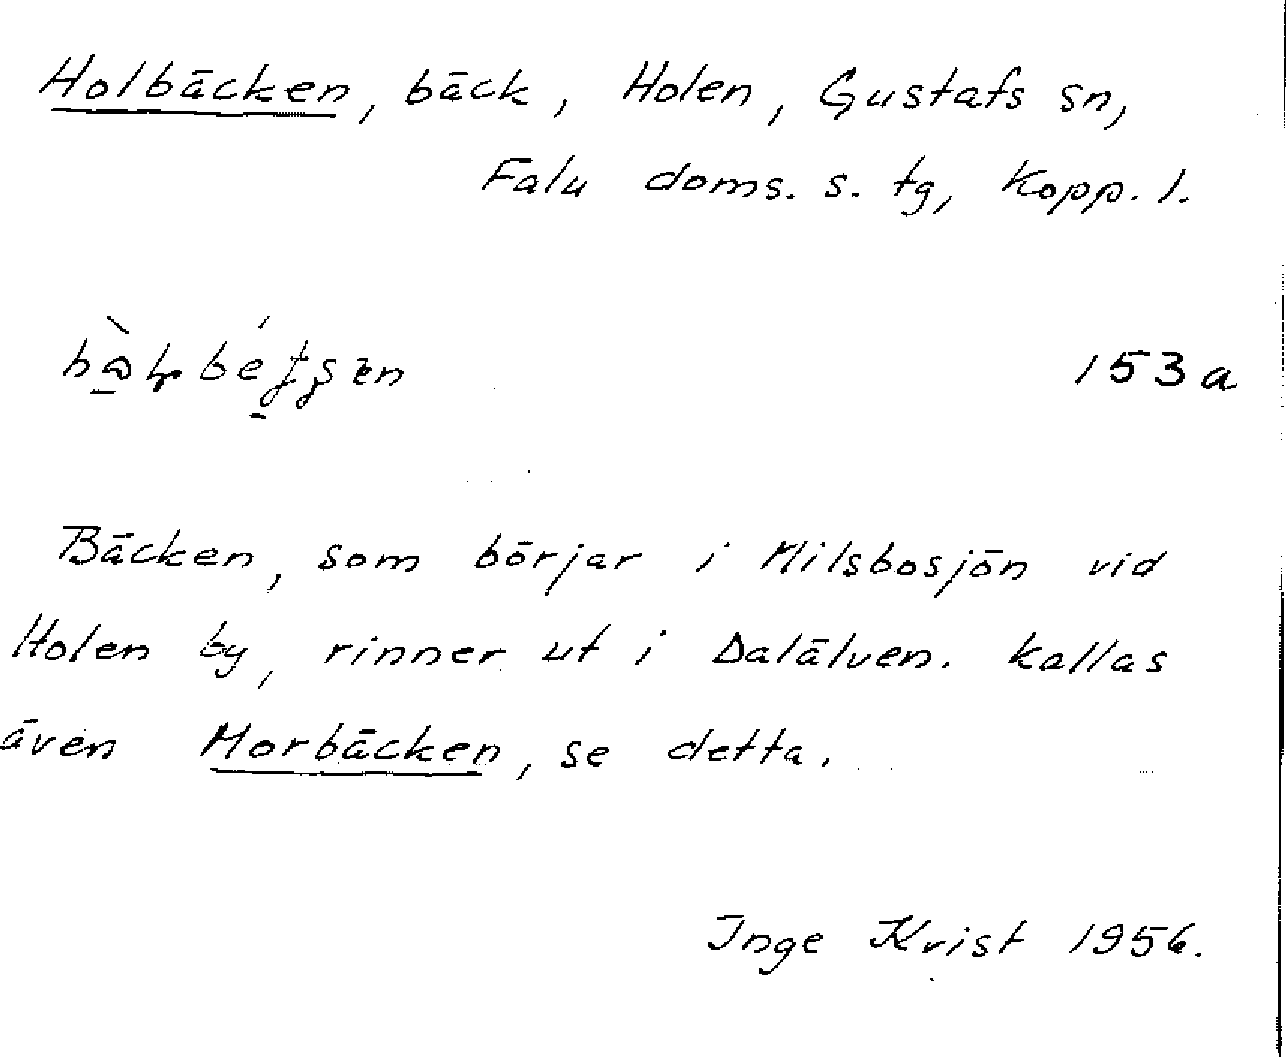 Holbäcken, bäck, Holen, Gustafs sn,
Falu doms. s. tg, Kopp. l.
153a
Bäcken, som börjar i Milsbosjön vid
Holen by, rinner ut i Dalälven. Kallas
även Morbäcken, se detta.
Inge Krist 1956.